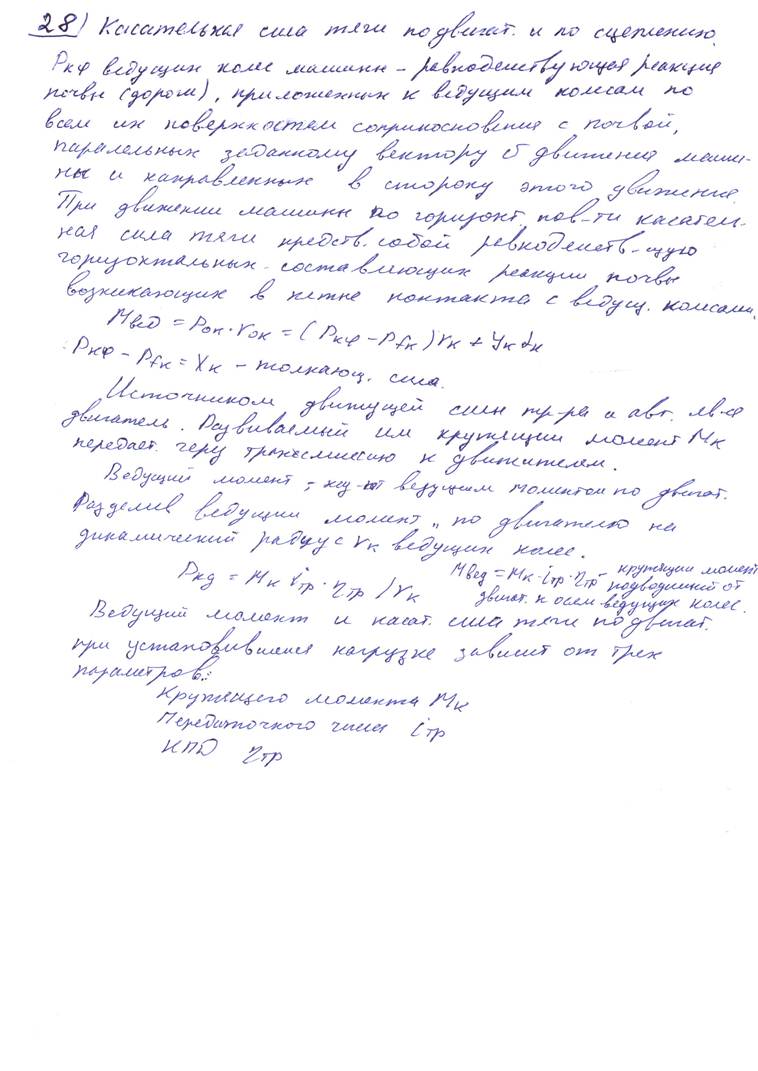 28) Касательная сила тяги по двигат. и по сцеплению.
Pкφ ведущих колес машины – равнодействующая реакция
почвы (дороги), приложенных к ведущим колесам по
всем их поверхностям соприкосновения с почвой,
паралельных заданному вектору υ движения маши-
ны и направленных в сторону этого движения.
При движении машины по горизонт. пов-ти касатель-
ная сила тяги предст. собой равнодейств-щую
горизонтальных составляющих реакции почвы
возникающих в пятне контакта с ведущ. колесами.
Mвед = Pок·rок = (Pкφ – Pfк)rк + Yк αк
Pкφ – Pfк = Xк – толкающ. сила.
Источником движущей силы тр-ра и авт. яв-ся
двигатель. Развиваемый им крутящий момент Mк
передает. через трансмиссию к движителем.
Ведущий момент, наз-ют ведущим моментом по двигат.
Разделив ведущий момент „ по двигателю на
динамический радиус rк ведущих колес.
Pкд = Mк iтр · ηтр / rк
Mвед = Mк · iтр · ηтр – крутящий момент
подводимый от
двигат. к осям ведущих колес.
Ведущий момент и касат. сила тяги по двигат.
при установившейся нагрузке зависит от трех
параметров:
Крутящего момента Mк
Передаточного числа iтр
КПД ηтр